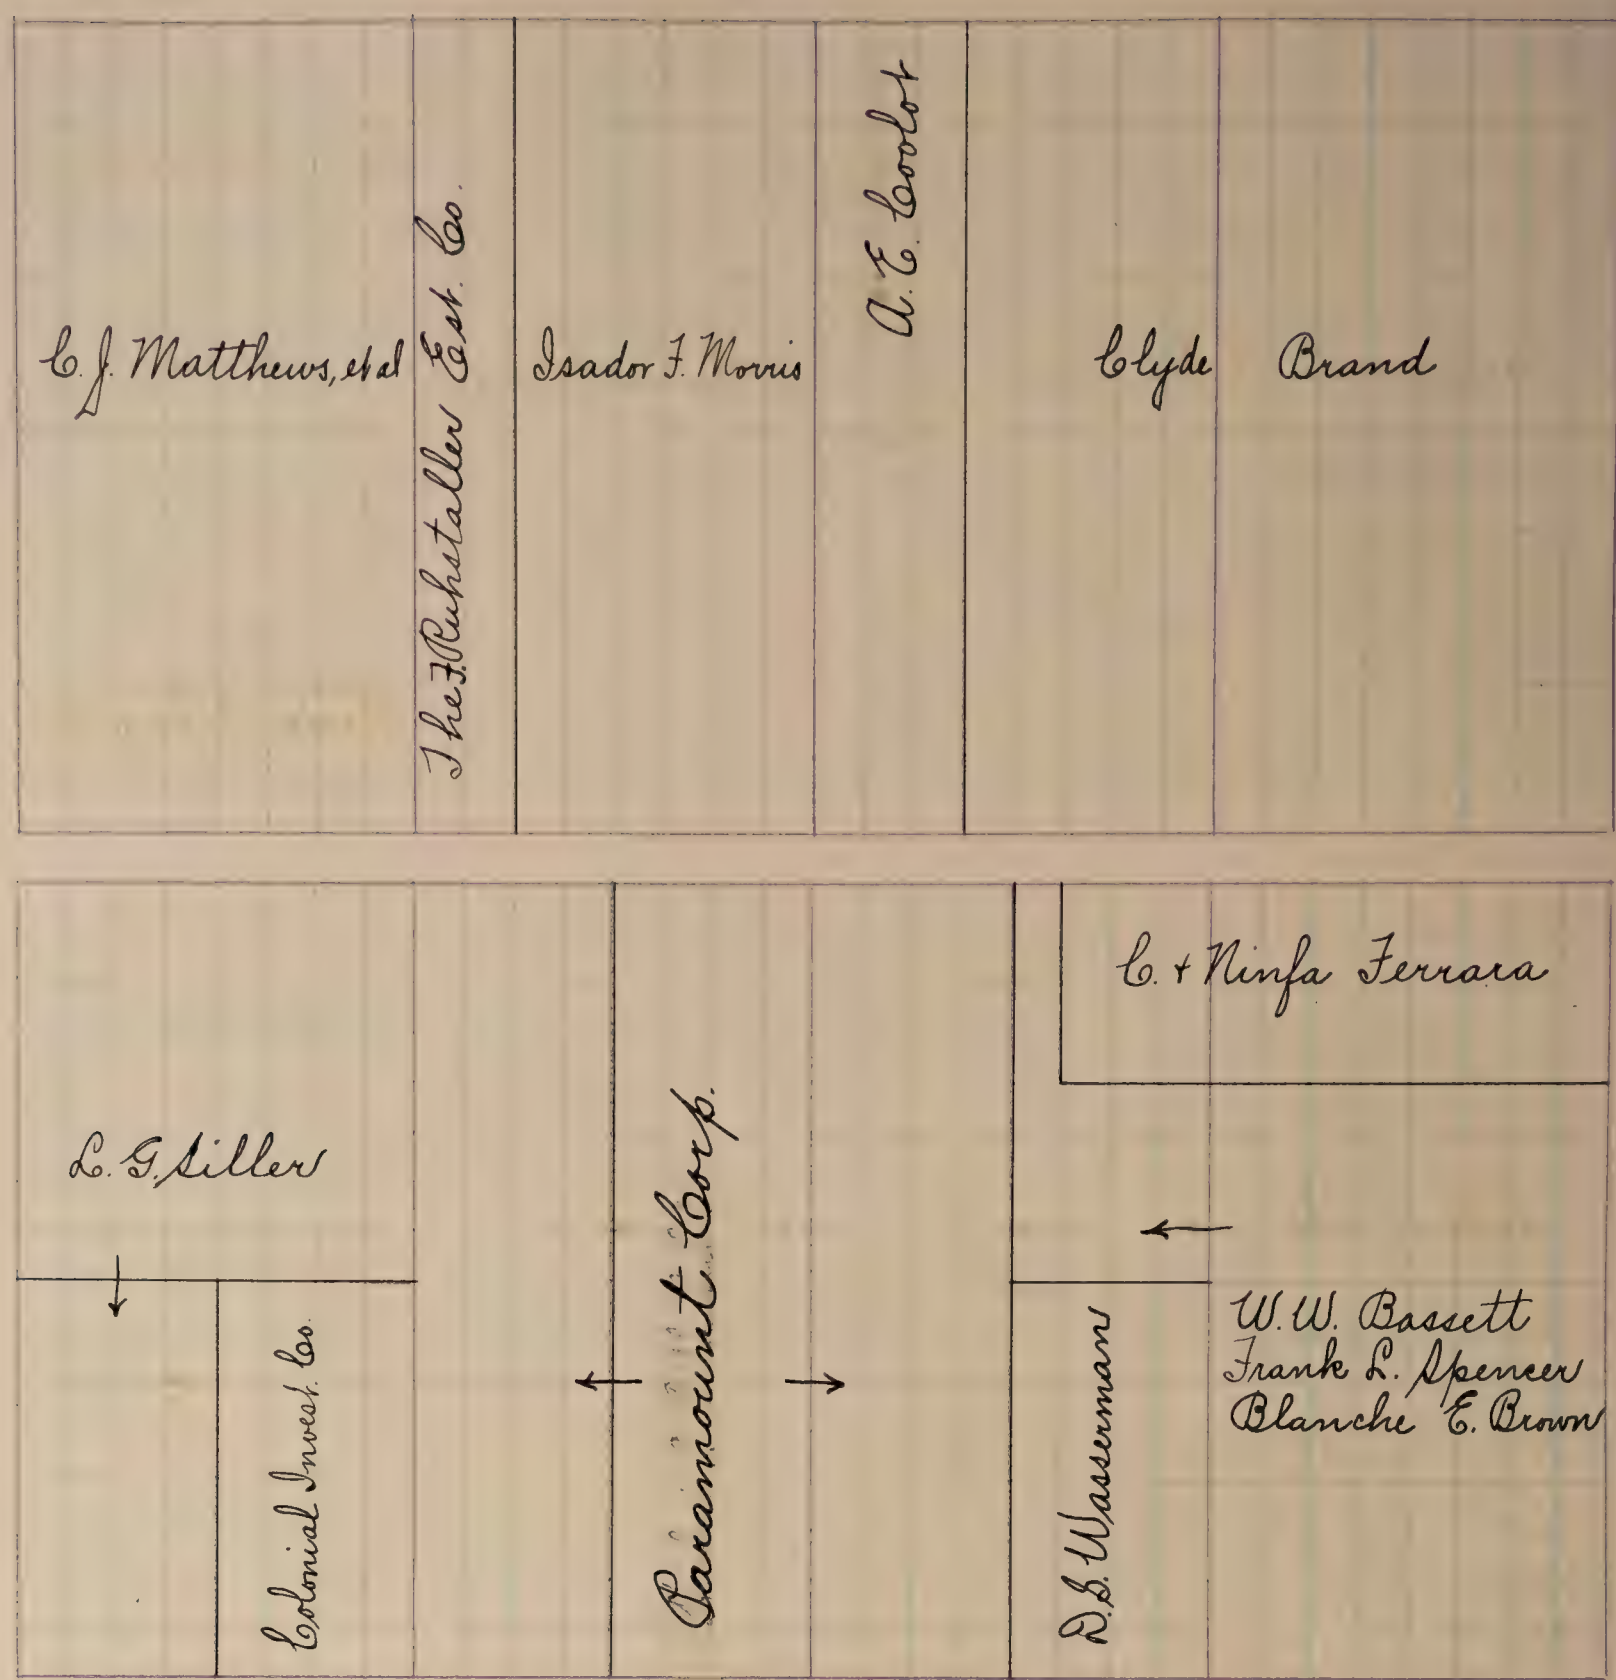 C. J. Matthews, et al
The F. Ruhstaller Est. Co.
Isador F. Morris
A. E. Coolot
Clyde Brand
C. + Ninfa Ferrara
L. G. Siller
Colonial Invest. Co.
Paramount Corp.
D. S. Wasserman
W. W. Bassett
Frank L. Spencer
Blanche E. Brown